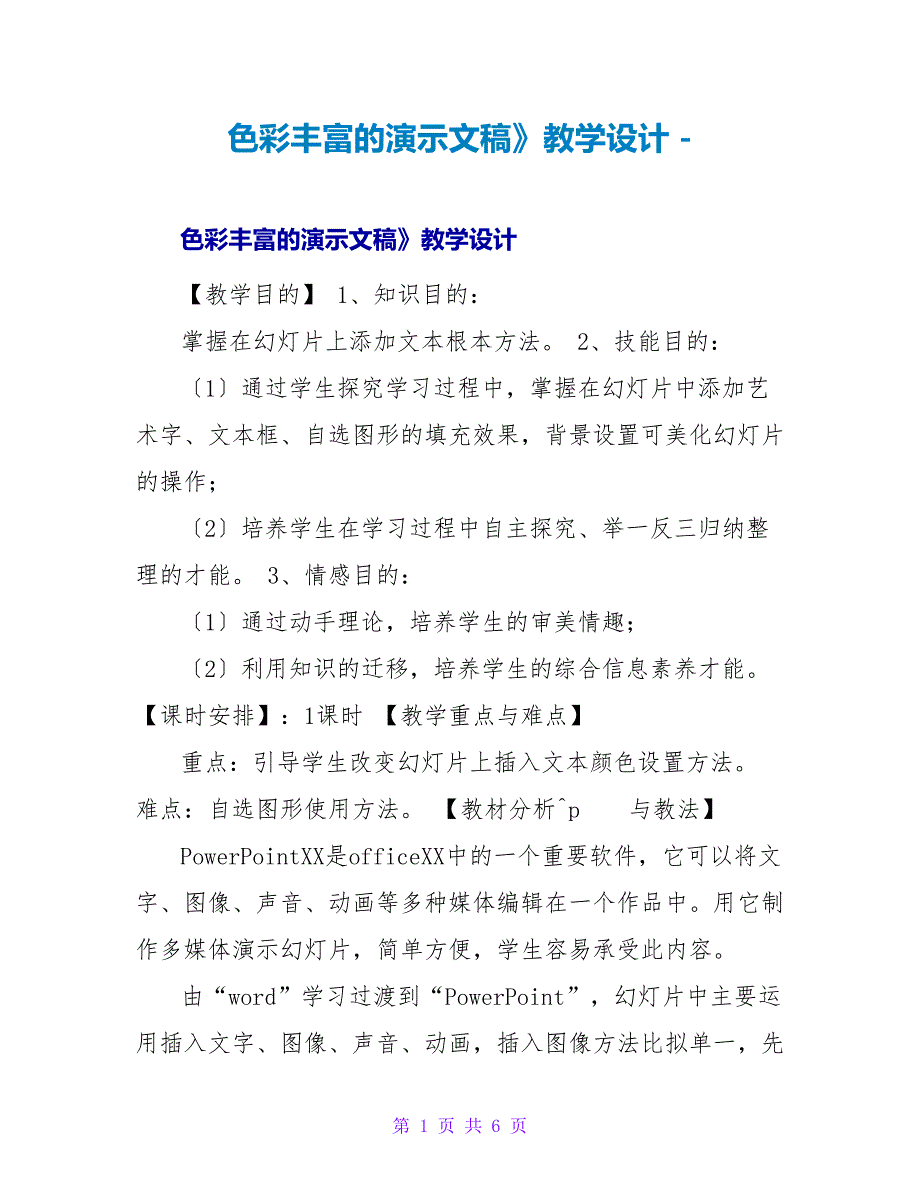 色彩丰富的演示文稿》教学设计 -
色彩丰富的演示文稿》教学设计
【教学目的】 1、知识目的：
掌握在幻灯片上添加文本根本方法。 2、技能目的：
〔1〕通过学生探究学习过程中，掌握在幻灯片中添加艺
术字、文本框、自选图形的填充效果，背景设置可美化幻灯片
的操作；
〔2〕培养学生在学习过程中自主探究、举一反三归纳整
理的才能。 3、情感目的：
〔1〕通过动手理论，培养学生的审美情趣；
〔2〕利用知识的迁移，培养学生的综合信息素养才能。
【课时安排】：1课时 【教学重点与难点】
重点：引导学生改变幻灯片上插入文本颜色设置方法。
难点：自选图形使用方法。 【教材分析^p 与教法】
PowerPointXX是officeXX中的一个重要软件，它可以将文
字、图像、声音、动画等多种媒体编辑在一个作品中。用它制
作多媒体演示幻灯片，简单方便，学生容易承受此内容。
由“word”学习过渡到“PowerPoint”，幻灯片中主要运
用插入文字、图像、声音、动画，插入图像方法比拟单一，先
第 1 页 共 6 页